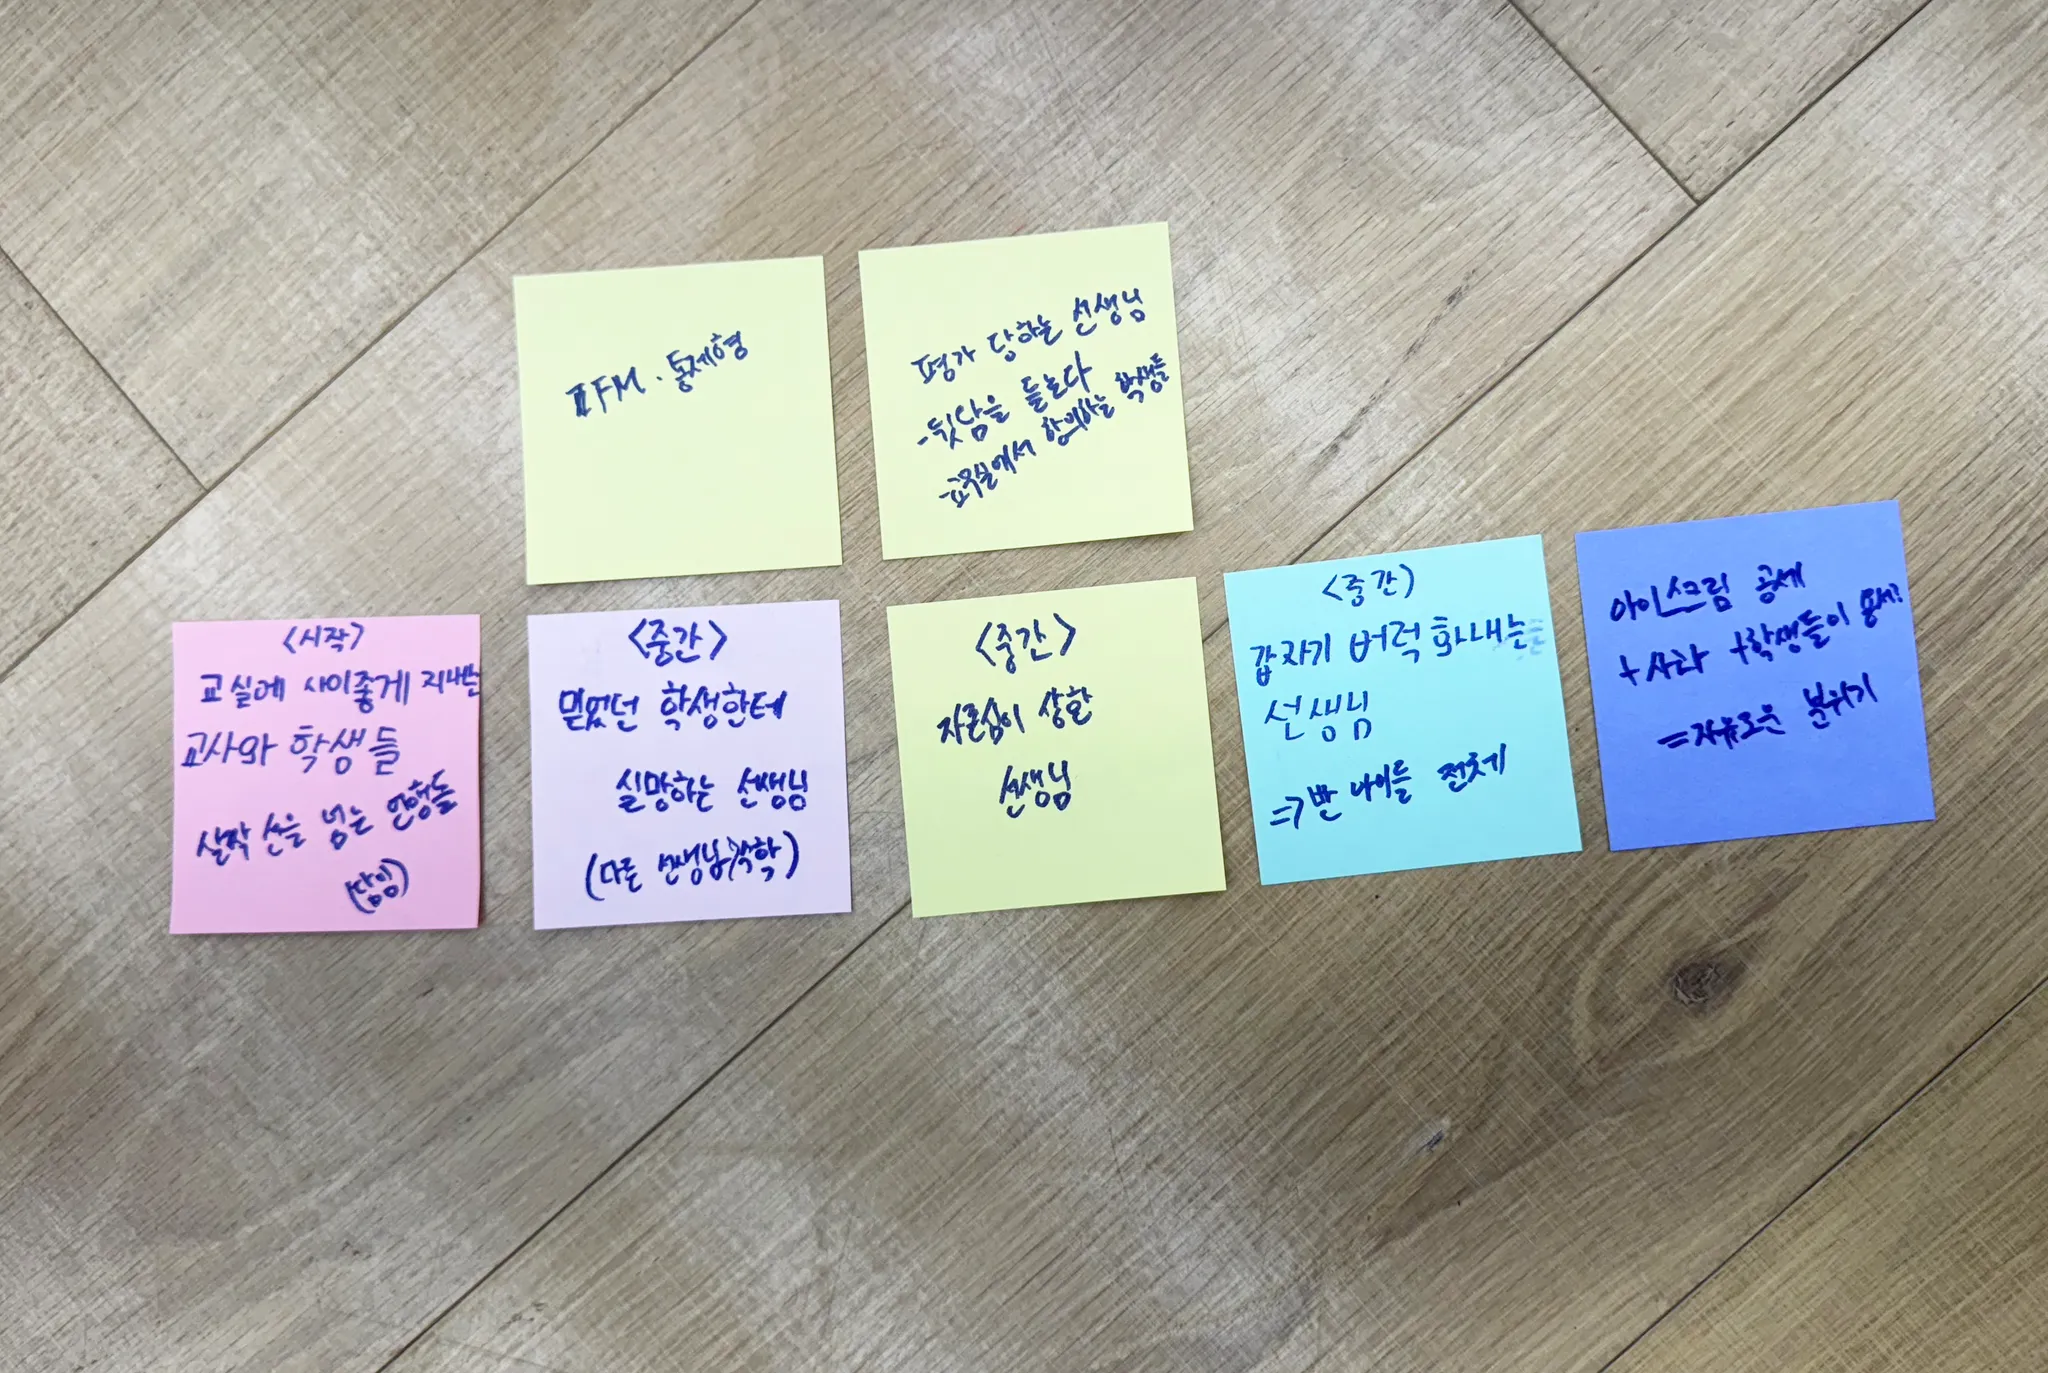 IFM ·통제형
평가 당하는 선생님
-뒷담을 듣는다
-교무실에서 항의하는 학생들
<시작>
교실에 사이좋게 지내는
교사와 학생들
살짝 선을 넘는 언행들
(담임)
<중간>
믿었던 학생한테
실망하는 선생님
(다른 선생님
<중간>
자존심이 상한
선생님
<중간>
갑자기 버럭 화내는
선생님
=> 반 아이들 전체
아이스크림 공세
+ 사과 +학생들이
=자유로운 분위기